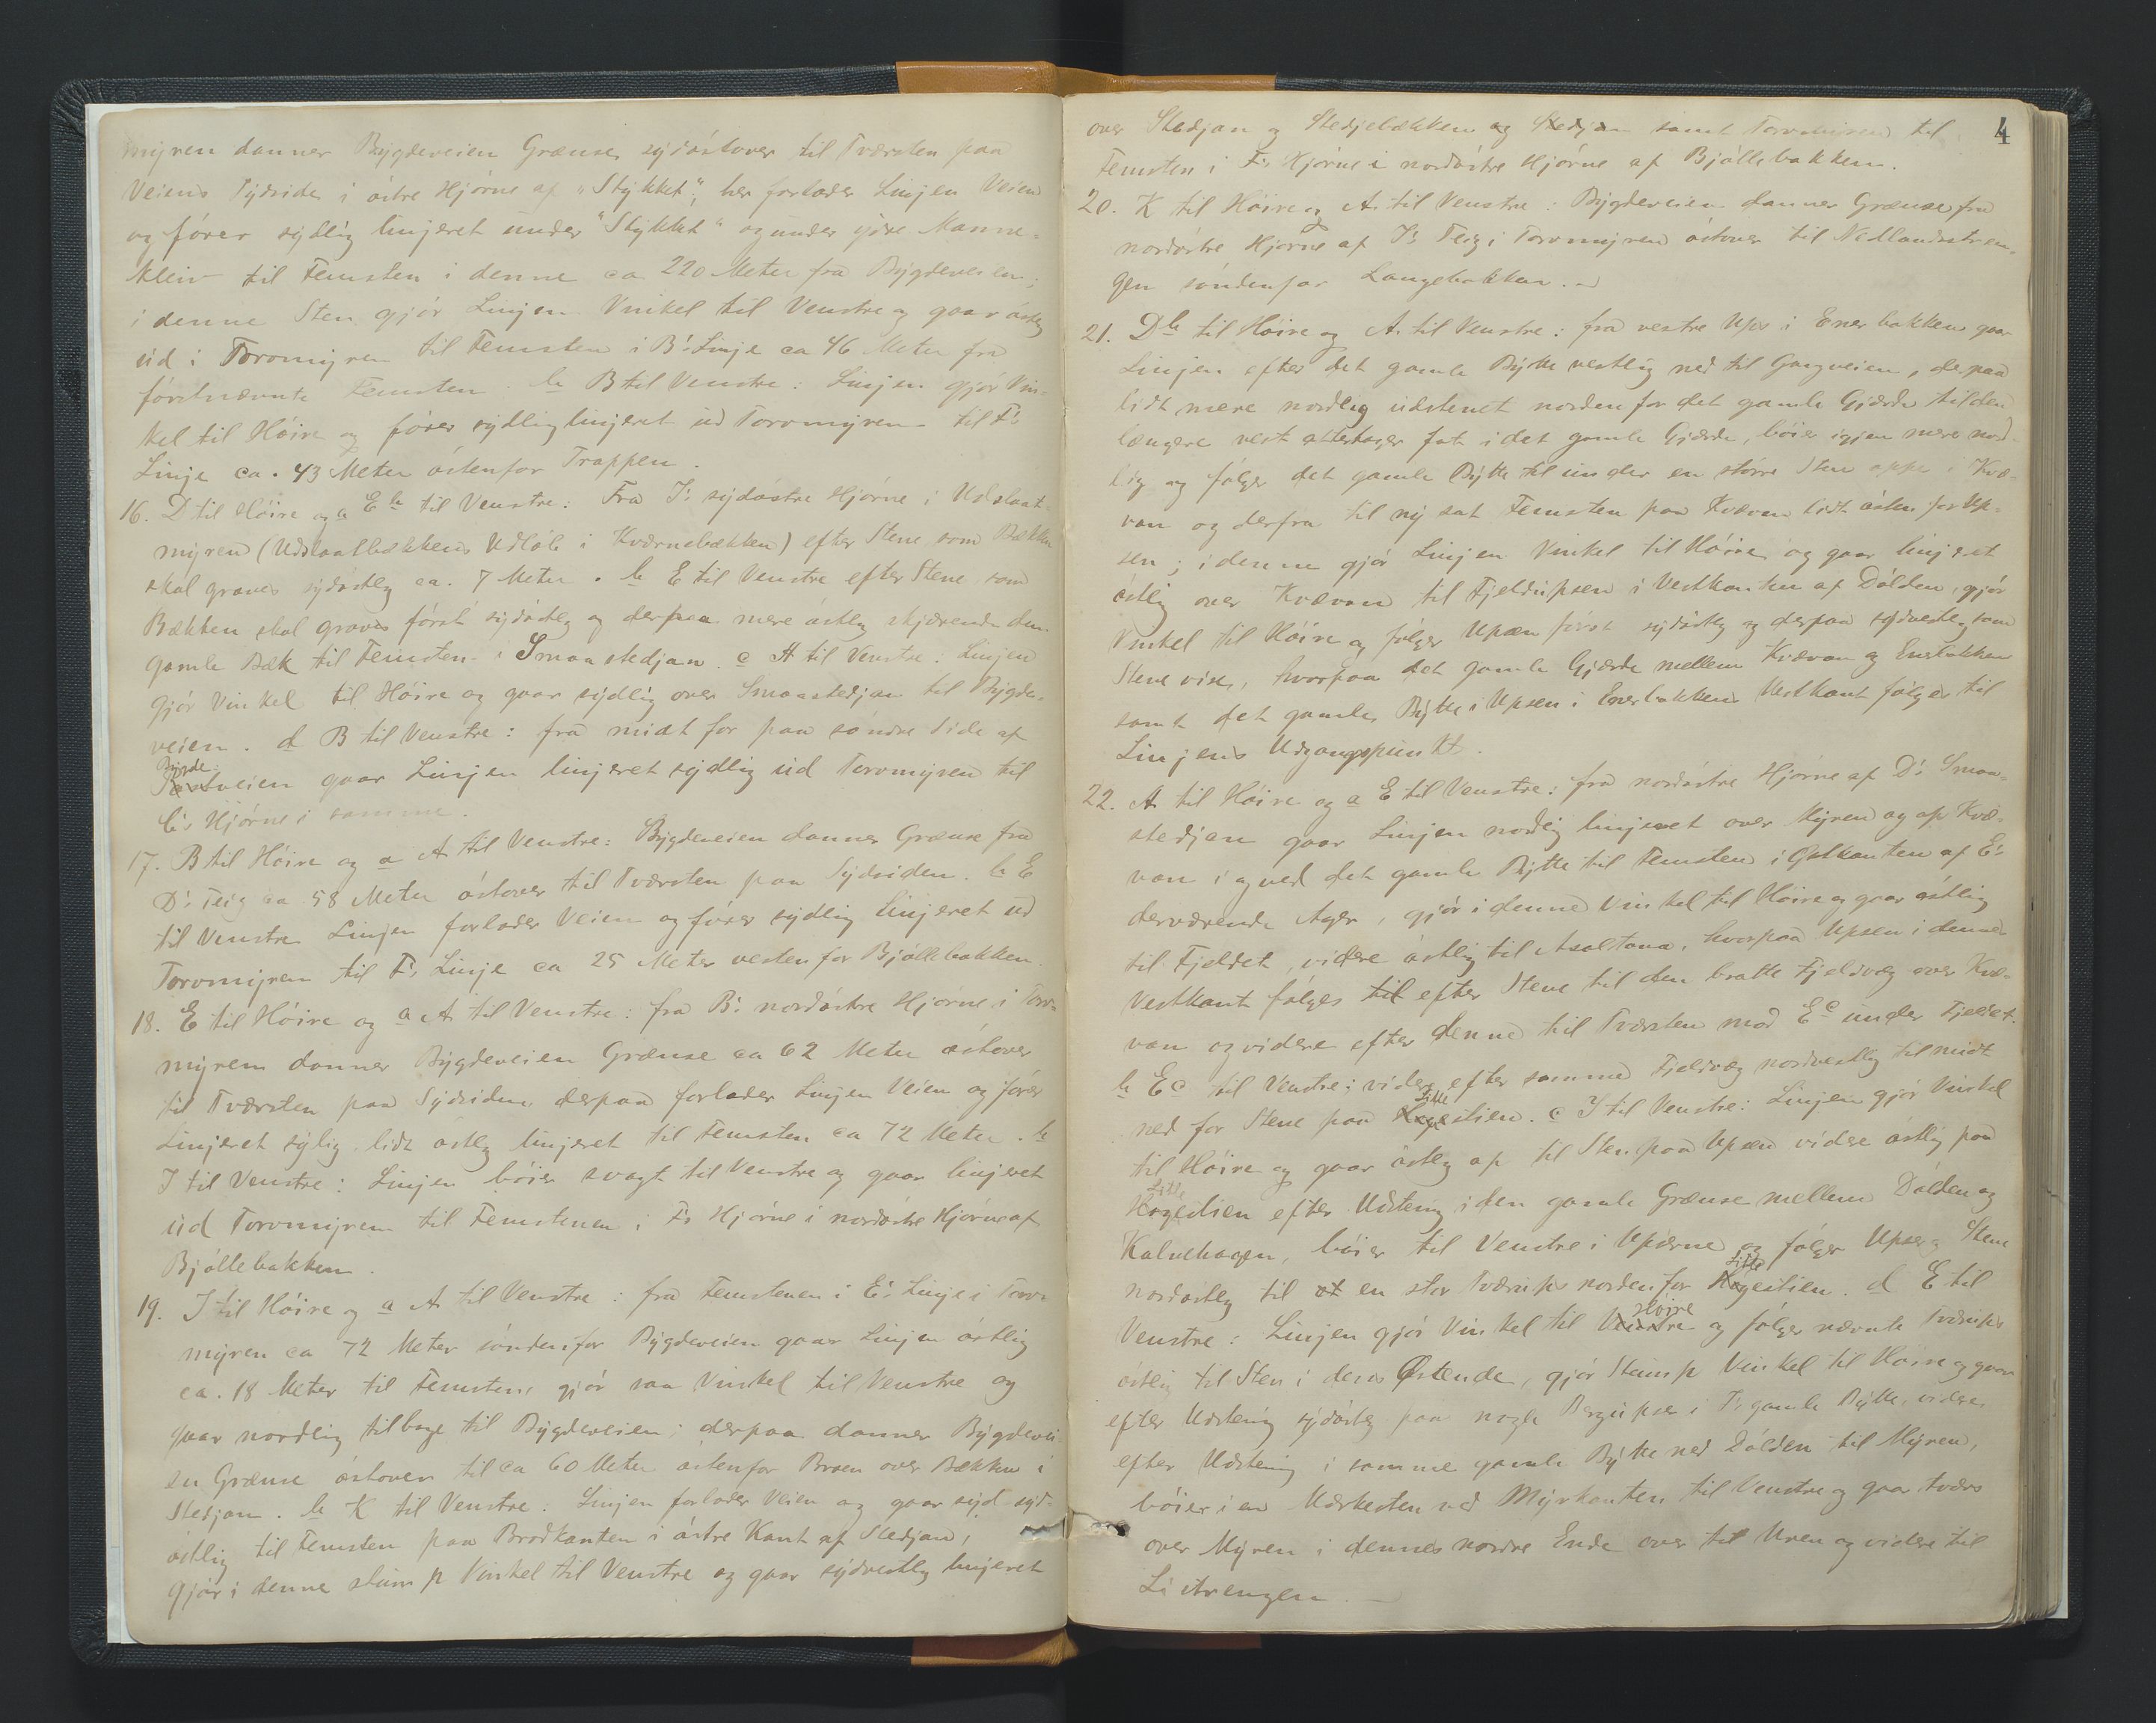 myren danner Bygdeveien Grænse sydøstover til Tværsten paa
Veiens Sydside i østre Hjørne af "Stykket", her forlader Linjen Veien
og fører sydlig linjeret under "Stykket" og under ijøre Manne-
kleiv til Femsten i denne ca 220 Meter fra Bygdeveien;
i denne Sten gjør Linjen Vinkel til Venstre og gaar østlig
ud i Torvmyren til Femsten i B's Linje ca 46 Meter fra
førstnævnte Femsten. b B til Venstre: Linjen gjør Vin-
kel til Høire og fører sydlig linjeret ud Torvmyren til F's
Linje ca. 43 Meter østenfor Trappen.
16. D til Høire og a E b til Venstre: Fra J's sydøstre Hjørne i Udslaat-
myren (Udslaatbækkens Udløb i Kværnebækken) efter Stene som Bækken
skal graves sydøstlig ca. 7 Meter. b E til Venstre efter Stene som
Bækken skal graves først sydøstlig og derpaa mere østlig skjærende den
gamle Bæk til Femsten i Smaastedjan. c A til Venstre: Linjen
gjør Vinkel til Høire og gaar sydlig over Smaastedjan til Bygde-
veien. d B til Venstre: fra midt for paa søndre Side af
Bygde-
veien gaar Linjen linjeret sydlig ud Torvmyren til
C's Hjørne i samme.
17. B til Høire og a A til Venstre: Bygdeveien danner Grænse fra
D's Teig ca 58 Meter østover til Tværsten paa Sydsiden. b E
til Venstre Linjen forlader Veien og fører sydlig linjeret ud
Torvmyren til F's Linje ca 25 Meter vesten for Bjøllebakken.
18. E til Høire og a A til Venstre: fra B's nordøstre Hjørne i Torv-
myren danner Bygdeveien Grænse ca 62 Meter østover
til Tværsten paa Sydsiden derpaa forlader Linjen Veien og fører
Linjeret sylig lidt østlig linjeret til Femsten ca 72 Meter. b
J til Venstre: Linjen bøier svagt til Venstre og gaar linjeret
ud Torvmyren til Femstenen i F's Hjørne i nordøstre Hjørne af
Bjøllebakken.
19. J til Høire og a A til Venstre: fra Femstenen i E's Linje i Torv-
myren ca 72 Meter søndenfor Bygdeveien gaar Linjen østlig
ca. 18 Meter til Femsten, gjør saa Vinkel til Venstre og
gaar nordlig tilbage til Bygdeveien; derpaa danner Bygdevei-
en Grænse østover til ca 60 Meter østenfor Broen over Bækken i
Stedjan. b K til Venstre: Linjen forlader Veien og gaar syd-syd-
østlig til Femsten paa Brodkanten i østre Kant af Stedjan,
gjør i denne stump Vinkel til Venstre og gaar sydvestlig linjeret
4
over Stedjan og Stedjebækken og Stedjan samt Torvmyren til
Femsten i F's Hjørne i nordøstre Hjørne af Bjøllebakken.
20. K til Høire og A til Venstre: Bygdeveien danner Grænse fra
nordøstre Hjørne af J's Teig i Torvmyren østover til Nedlandsstren-
gen søndenfor Langebakken.
21. D b til Høire og A til Venstre: fra vestre Ups i Enerbakken gaar
Linjen efter det gamle Bytte vestlig ned til Gangveien, derpaa
lidt mere nordlig udstenet norden for det gamle Gjærde til den
længere vest attertager fat i det gamle Gjærde, bøier igjen mere nord-
lig og følger det gamle Bytte til under en større Sten oppe i Kvæ-
van og derfra til ny sat Femsten paa Kvævan lidt østen for Up-
sen; i denne gjør Linjen Vinkel til Høire og gaar linjeret
østlig over Kvævan til Fjeldupsen i Vestkanten af Dålden, gjør
Vinkel til Høire og følger Upsen først sydøstlig og derpaa sydvestlig som
Stene vise, hvorpaa det gamle Gjærde mellem Kvævan og Enerbakken
samt det gamle Bytte i Upsen i Enerbakkens Vestkant følges til
Linjens Udgangspunkt.
22. A til Høire og a E til Venstre: fra nordøstre Hjørne af D's Smaa-
stedjan gaar Linjen nordlig linjeret over Myren og op Kvæ-
van i og ved det gamle Bytte til Femsten i Østkanten af E's
derværende Ager, gjør i denne Vinkel til Høire og gaar østlig
til Fjeldet, videre østlig til Asaltona, hvorpaa Upsen i dennes
Vestkant følges til efter Stene til den bratte Fjeldvæg over Kvæ-
van og videre efter denne til Tværsten mod E c under Fjeldet.
b E c til Venstre: videre efter samme Fjeldvæg nordvestlig til midt
Litle
ned for Stene paa Kogestien. c J til Venstre: Linjen gjør Vinkel
til Høire og gaar østlig op til Sten paa Upsen videre østlig paa
Litle
Kogestien efter Udstening i den gamle Grænse mellem Dålden og
Kalvehagen, bøier til Venstre i Upserne og følger Ups og Stene
Litle
nordøstlig til at en stor Tværups nordenfor Kogestien. d E til
Høire
Venstre: Linjen gjør Vinkel til Venstre og følger nævnte Tværups
østlig til Sten i dens Østende, gjør Stump Vinkel til Høire og gaar
efter Udstening sydøstlig paa nogle Bergupser i J's gamle Bytte, videre
efter Udstening i samme gamle Bytte ned Dålden til Myren,
bøier i en Mærkesten ved Myrkanten til Venstre og gaar tværs
over Myren i dennes nordre Ende over til Uren og videre til
Listrengen.